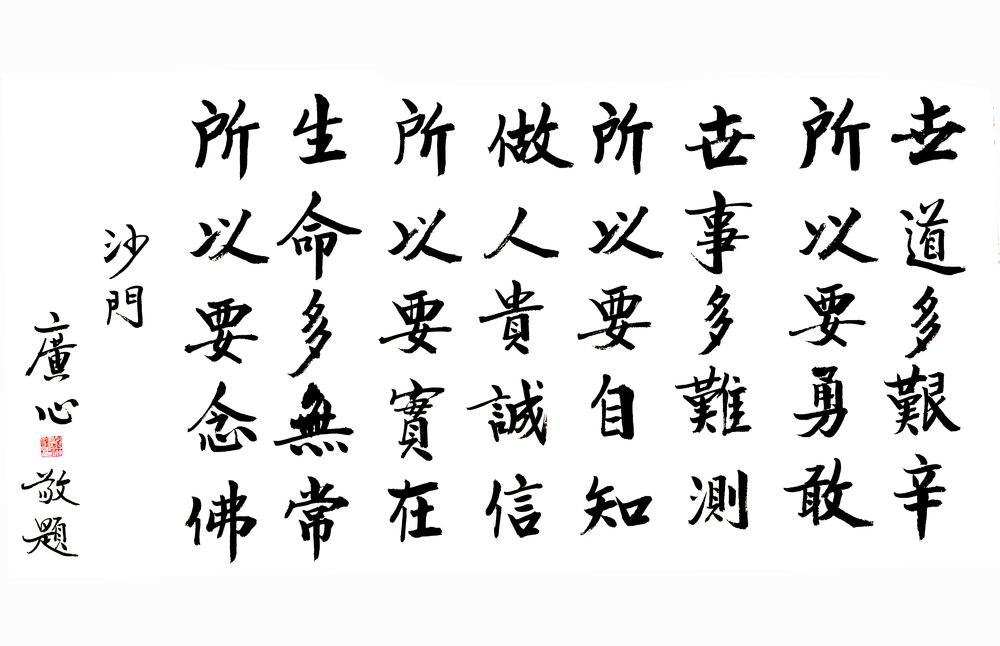 世道多艱辛
所以要勇敢
世事多難測
所以要自知
做人貴誠信
所以要實在
生命多無常
所以要念佛
沙門
廣心敬題